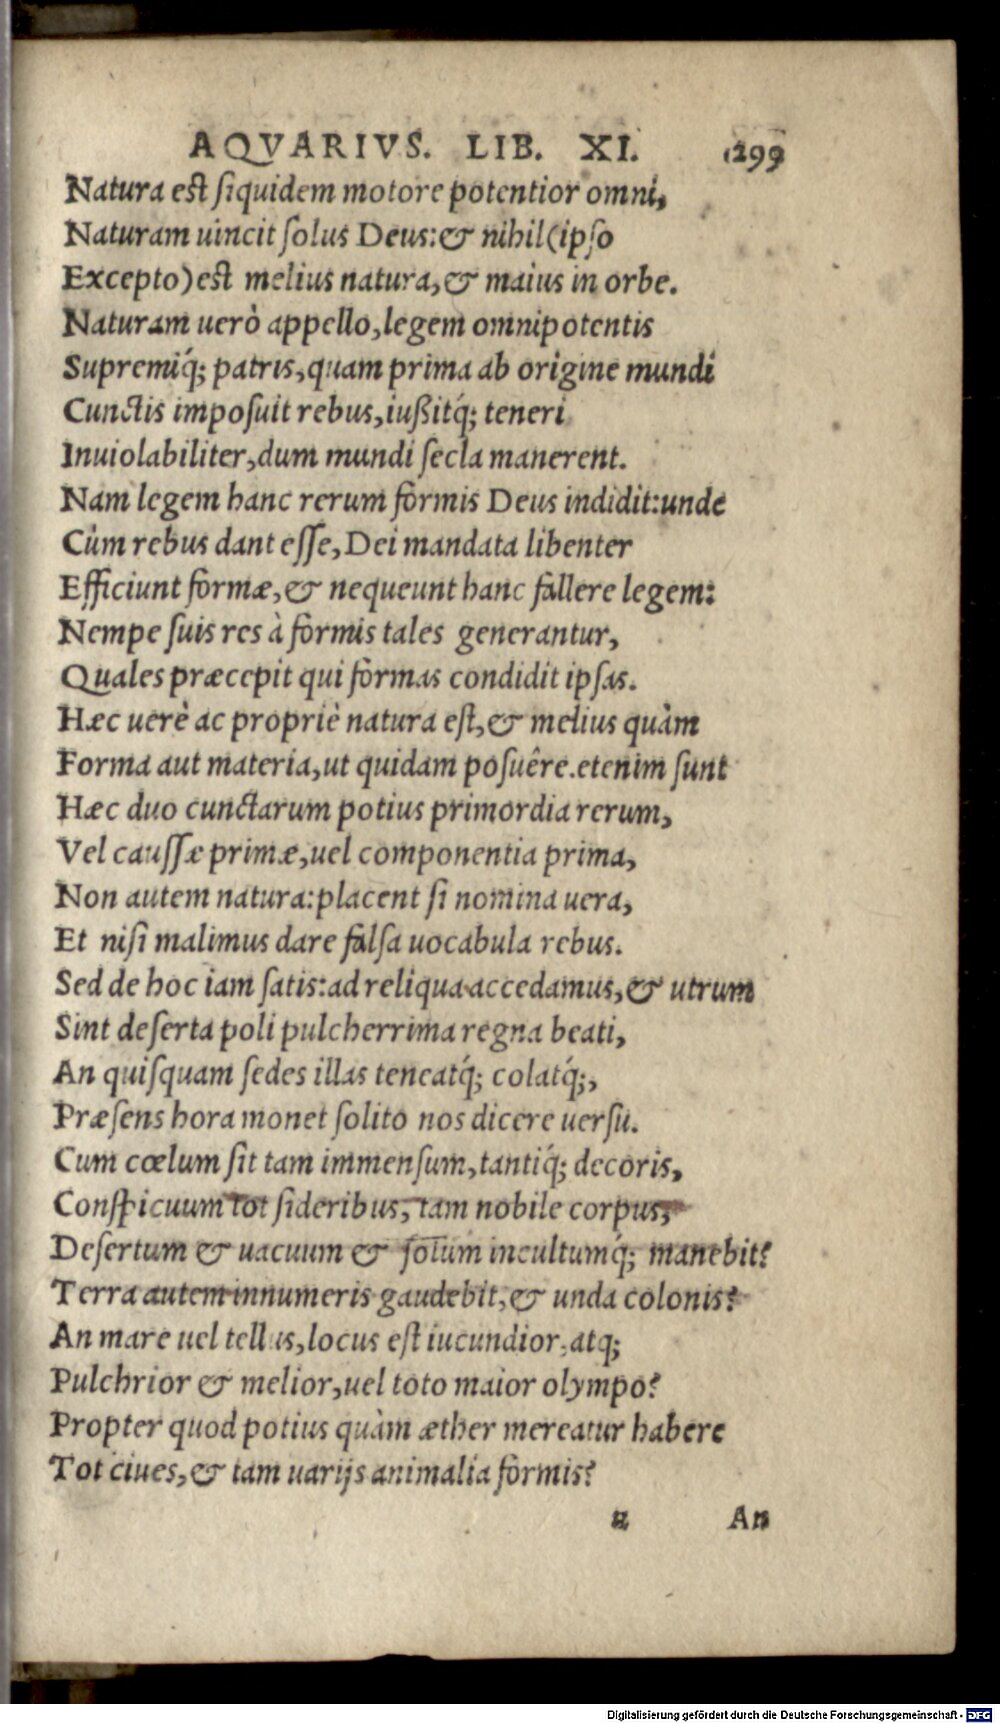 AQVARIVS. LIB. XI. 299
Natura est ſiquidem motore potentior omni,
Naturam uincit ſolus Deus:& nihil(ipſo
Excepto)est melius natura,& maius in orbe.
Naturam uerò appello,legem omnipotentis
Supremiq́; patris,quam prima ab origine mundi
Cunctis impoſuit rebus,iußitq́; teneri
Inuiolabiliter,dum mundi ſecla manerent.
Nam legem hanc rerum formis Deus indidit:unde
Cùm rebus dant eſſe,Dei mandata libenter
Efficiunt formæ,& nequeunt hanc fallere legem:
Nempe ſuis res à formis tales generantur,
Quales præcepit qui formas condidit ipſas.
Hæc uerè ac propriè natura eſt,& melius quàm
Forma aut materia,ut quidam poſuêre.etenim ſunt
Hæc duo cunctarum potius primordia rerum,
Vel cauſſæ primæ,uel componentia prima,
Non autem natura:placent ſi nomina uera,
Et niſi malimus dare falſa uocabula rebus.
Sed de hoc iam ſatis:ad reliqua accedamus,& utrum
Sint deſerta poli pulcherrima regna beati,
An quiſquam ſedes illas teneatq́; colatq́;,
Præſens hora monet ſolito nos dicere uerſu.
Cum cœlum ſit tam immenſum,tantiq́; decoris,
Conſpicuum tot ſideribus, tam nobile corpus,
Deſertum & uacuum & ſolum incultumq́; manebit?
Terra autem innumeris gaudebit,& unda colonis?
An mare uel tellus,locus eſt iucundior,atq;
Pulchrior & melior,uel toto maior olympo?
Propter quod potius quàm æther mereatur habere
Tot ciues,& tam uarijs animalia formis?
u An
Digitalisierung gefördert durch die Deutsche Forschungsgemeinschaft - DFG